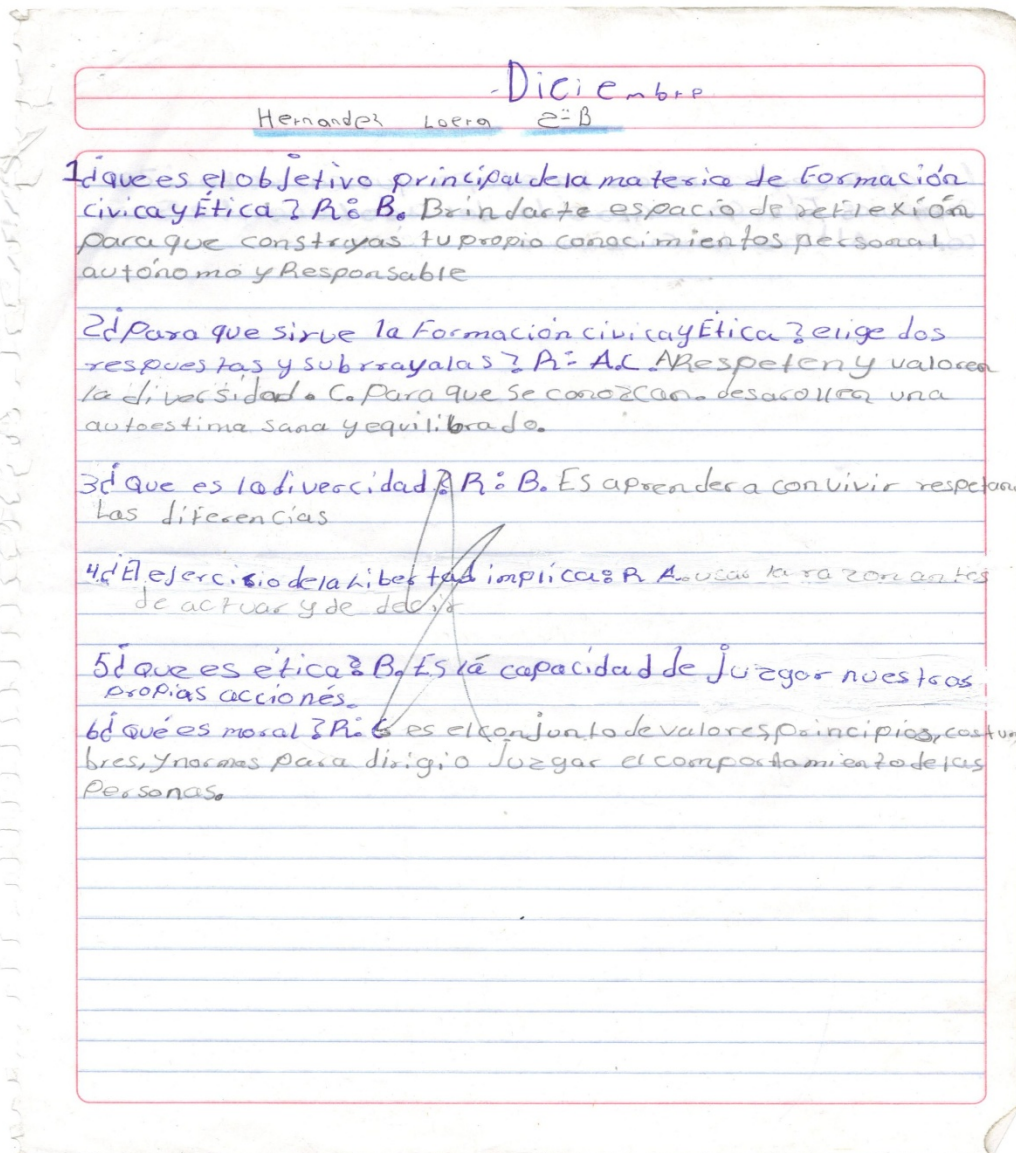 Diciembre
Hernandez Loera 2-B
1¿que es el objetivo principal de la materia de Formación
civica y Ética? R: B. Brindarte espacio de reflexión
para que construyas tu propio conocimientos personal
autónomo y Responsable
2¿Para que sirve la Formación civica y Ética? elige dos
respuestas y subrrayalas? R: A.C. A Respeten y valoren
la diversidad. C. Para que se conozcan. desarollen una
autoestima sana y equilibrado.
3¿Que es la divercidad? R: B. Es aprender a convivir respetan
Las diferencias
4¿El ejercisio de la Libertad implica: R A. usar la razon antes
de actuar y de decir
5¿que es ética? B. Es lá capacidad de juzgar nuestras
propias acciónes.
6¿qué es moral? R: C es el conjunto de valores, principios, costum
bres, y normas para dirigi o Juzgar el comportamiento de las
Personas.